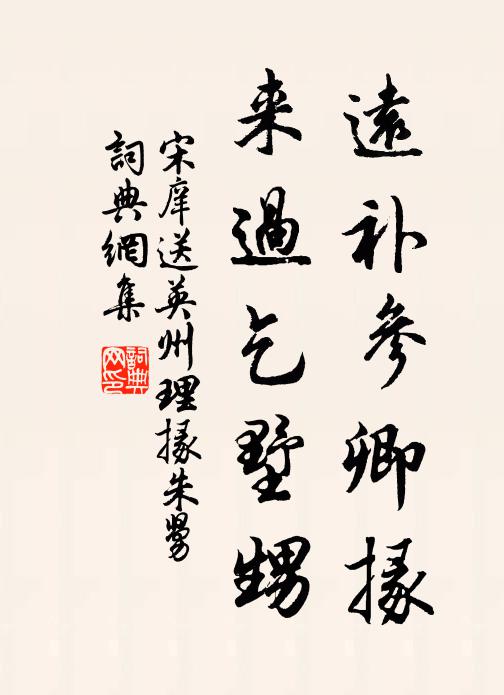 遠補參卿掾
来過乞墅甥
宋庠送英州理掾朱甥
詞典網集
詞典網印